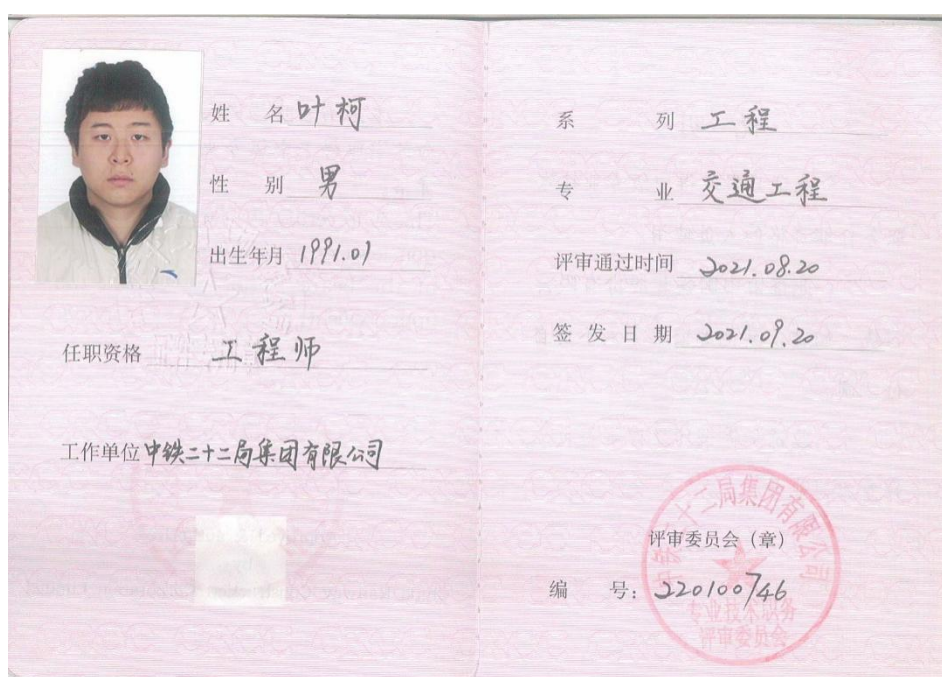 姓名 叶柯
性别 男
出生年月 1991.01
任职资格 工程师
工作单位 中铁二十二局集团有限公司
系列 工程
专业 交通工程
评审通过时间 2021.08.20
签发日期 2021.09.20
评审委员会（章）
编号：220100746
中铁二十二局集团有限公司
专业技术职务
评审委员会